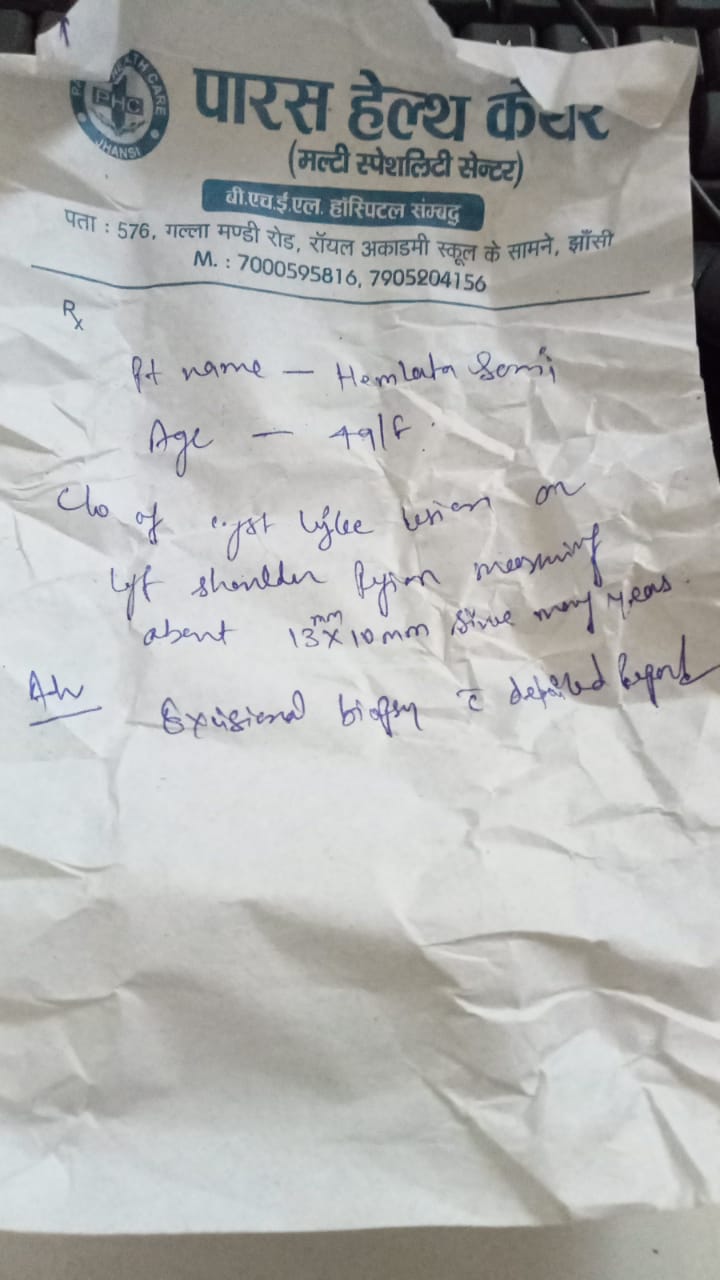 HEALTH CARE
PHC
JHANSI
पारस हेल्थ केयर
(मल्टी स्पेशलिटी सेन्टर)
बी.एच.ई.एल. हॉस्पिटल संम्बद्व
पता : 576, गल्ला मण्डी रोड, रॉयल अकाडमी स्कूल के सामने, झाँसी
M. : 7000595816, 7905204156
Rx
Pt name — Hemlata
Age — 49/F
C/o of cyst like lesion on
left shoulder Region measuring
about 13mm x 10mm since many years
Adv Excisional biopsy c̄ detailed Report